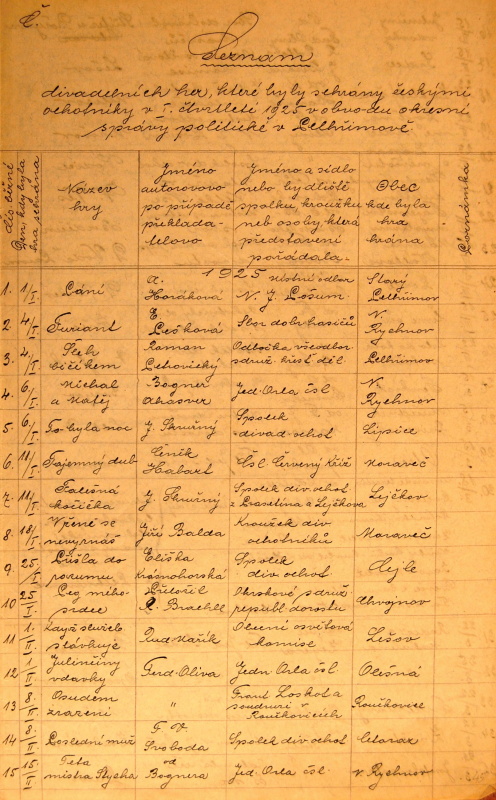 Č.
Seznam
divadelních her, které byly sehrány českými
ochotníky v I. čtvrtletí 1925 v obvodu okresní
správy politické v Pelhřimově
Čís. běžné
Den, kdy byla hra sehrána
Název hry
Jméno autorovovo po případě překlada-telovo
Jméno a sídlo nebo bydliště spolku kroužku neb osoby, která představení pořádala
Obec kde byla hra hrána
Poznámka
1925
1. 1/I. Páni A. Horáková Místní odbor N. J. Pošum. Starý Pelhřimov
2. 4/I. Furiant E. Pešková Sbor dobr. hasičů N. Rychnov
3. 4/I. bičíkem Roman Odbočka všeodbor. sdruž. křesť. děl. Pelhřimov
4. 6/I. Michal a Matěj Bogner Ahasver Jed. Orla čsl. N. Rychnov
5. 6/I. To byla noc J. Skružný Spolek divad. ochot. Lipice
6. 11/I. Tajemný dub Čeněk Habart Čsl. Červený Kříž Moraveč
7. 11/I. Falešná kočička J. Skružný Spolek div. ochot. z Prasetína a Lejčkova Lejčkov
8. 18/I. Vřené se nevyrnáš Jiří Balda Kroužek div. ochotníků Moraveč
9. 25./I. Přišla do rozumu Eliška Krásnohorská Spolek div. ochot. Hojle
10 25./I. R. Brachtl Okrskové sdruž. republ. dorostu Chvojnov
11 1./II. Když služeb. stávkuje Rud. Mařík Obecní osvětová komise Lešov
12 1/II. Julinčiny vdavky Ferd. Oliva Jedn. Orla čsl. Olešná
13 8./II. Osudem zrazeni " Frant. Loskot a soudruzi v Roučkovicích Roučkovice
14 8./II. Poslední muž F. X. Svoboda Spolek div. ochot.
15 15./II. Teta mistra Sycha od Bognera Jed. Orla čsl. N. Rychnov